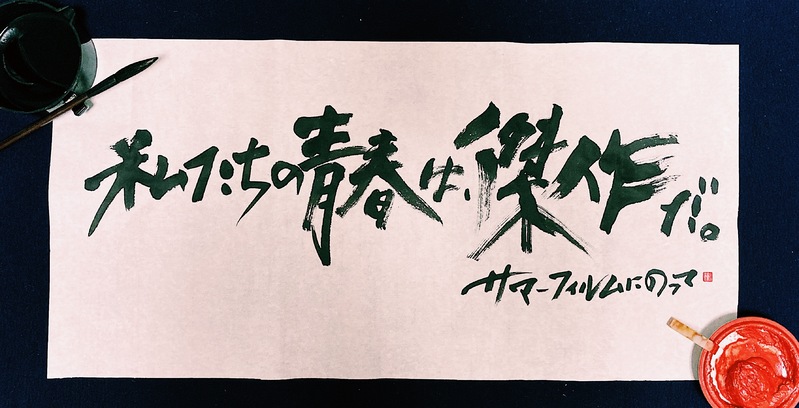 私たちの青春は、傑作だ。
サマーフィルムにのって